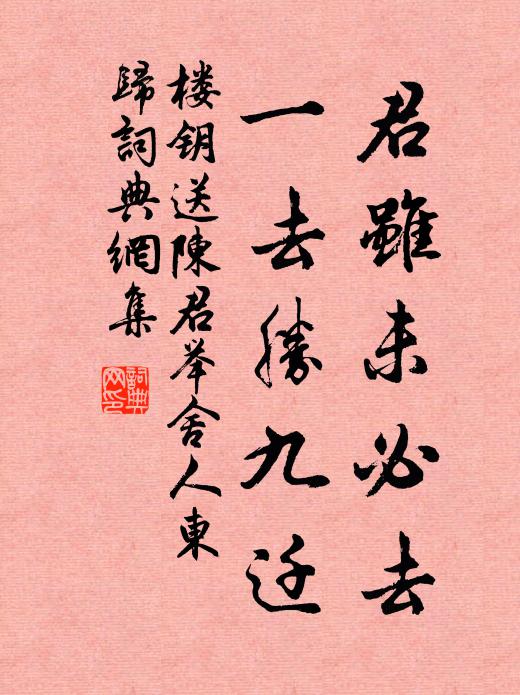 君雖未必去
一去勝九迁
楼钥送陳君举舍人東
歸詞典網集
詞典
网印